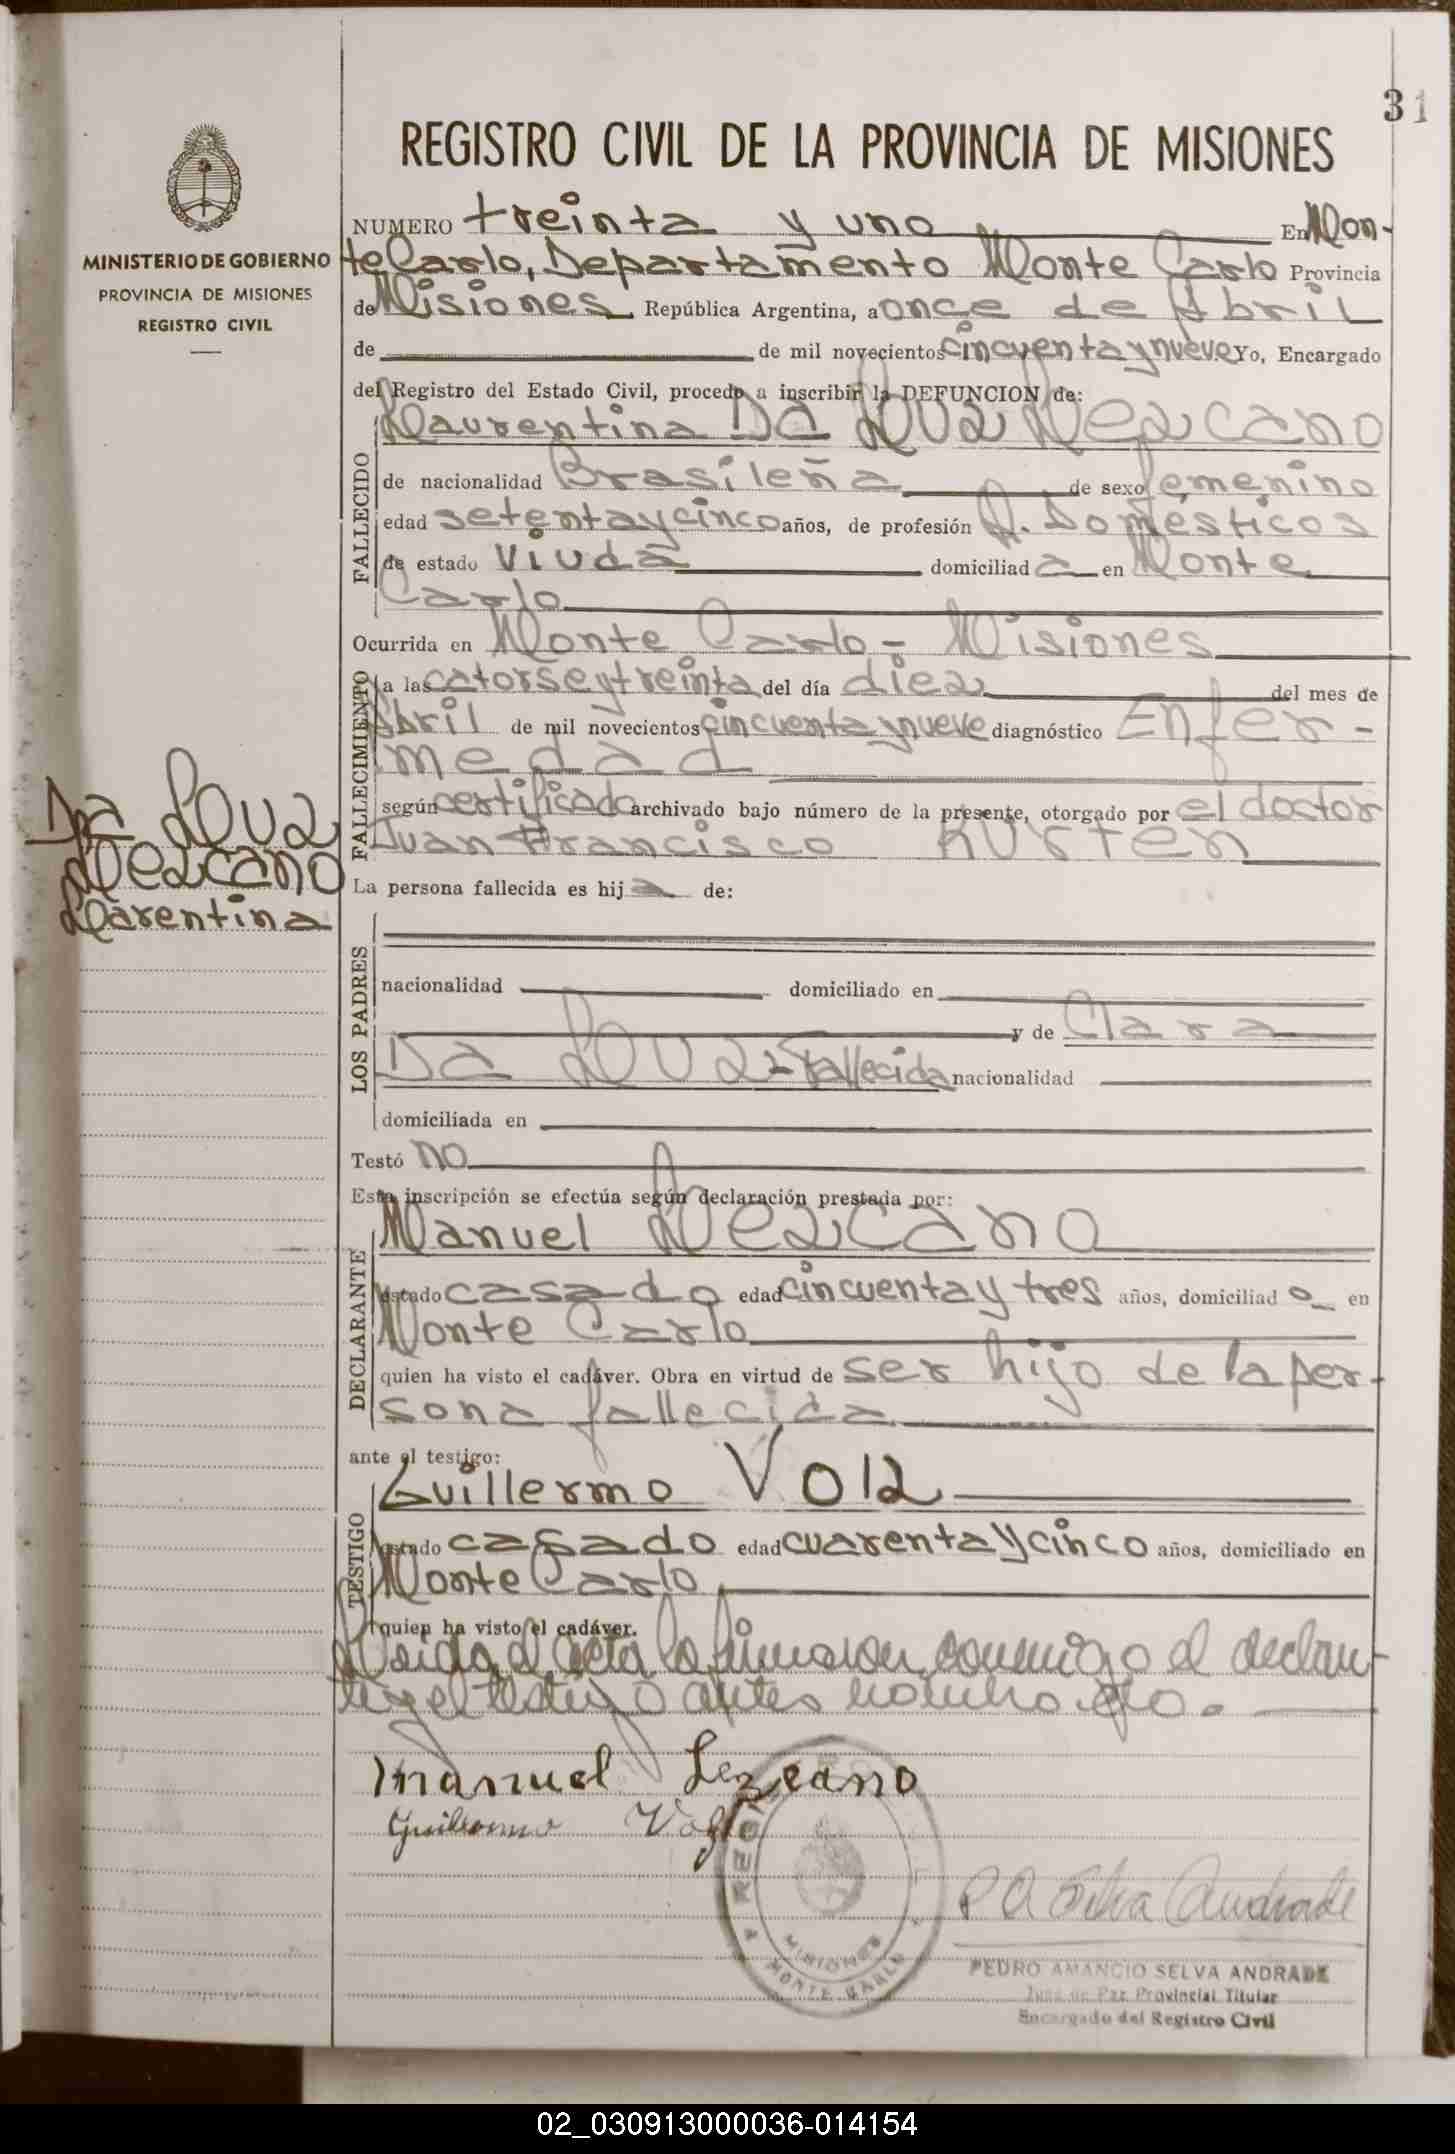 31
REGISTRO CIVIL DE LA PROVINCIA DE MISIONES
MINISTERIO DE GOBIERNO
PROVINCIA DE MISIONES
REGISTRO CIVIL
NUMERO treinta y uno En Mon-
te Carlo, Departamento Monte Carlo Provincia
de Misiones República Argentina, a once de Abril
de de mil novecientos cincuenta y nueve Yo, Encargado
del Registro del Estado Civil, procedo a inscribir la DEFUNCION de:
Laurentina Da Luz Lezcano
FALLECIDO
de nacionalidad Brasileña de sexo femenino
edad setenta y cinco años, de profesión Q. Domésticos
de estado Viuda domiciliad a en Monte
Carlo
Ocurrida en Monte Carlo - Misiones
FALLECIMIENTO
a las catorse y treinta del día diez del mes de
Abril de mil novecientos cincuenta y nueve diagnóstico Enfer-
medad
según certificado archivado bajo número de la presente, otorgado por el doctor
Juan Francisco Kurten
Da Luz
Lezcano
Larentina
La persona fallecida es hij a de:
LOS PADRES
nacionalidad domiciliado en
y de Clara
Da Luz - Fallecida nacionalidad
domiciliada en
Testó no
Esta inscripción se efectúa según declaración prestada por:
DECLARANTE
Manuel Lezcano
estado casado edad cincuenta y tres años, domiciliad o en
Monte Carlo
quien ha visto el cadáver. Obra en virtud de ser hijo de la per-
sona fallecida
ante el testigo:
TESTIGO
Guillermo Volz
estado casado edad cuarenta y cinco años, domiciliado en
Monte Carlo
quien ha visto el cadáver.
Leida el acta la firmaron conmigo el declaran-
te y el testigo antes nombrado.
Manuel Lezcano
Guillermo
P A Selva Andrade
MISIONES
MONTE CARLO
PEDRO AMANCIO SELVA ANDRADE
Juez de Paz Provincial Titular
Encargado del Registro Civil
02_030913000036-014154